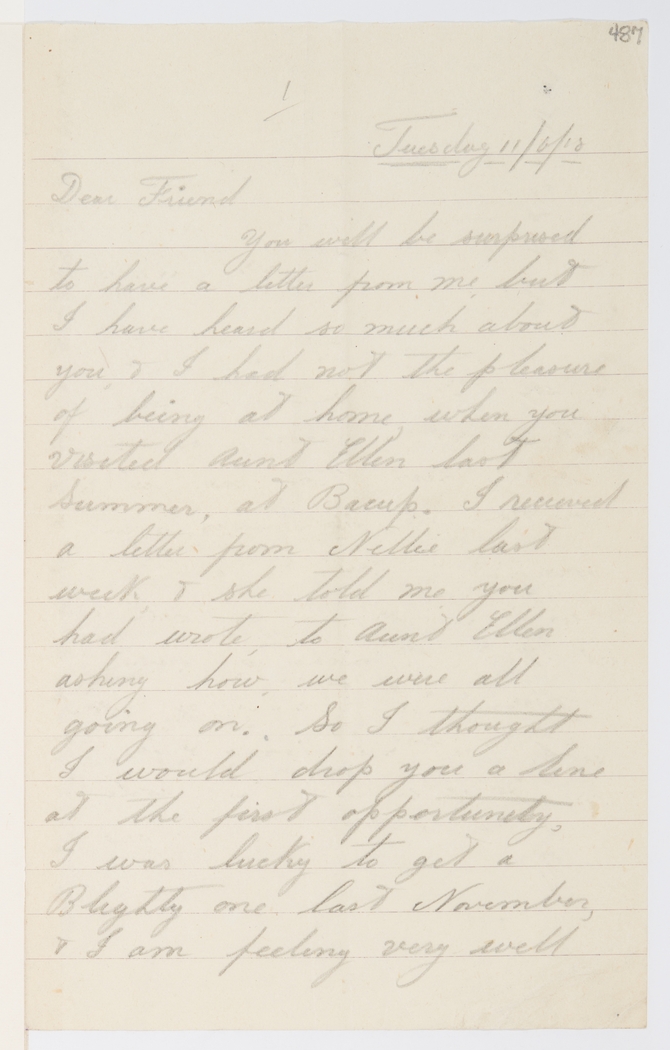 487
1
Tuesday 11/6/18
Dear Friend
You will be surprised
to have a letter from me, but
I have heard so much about
you, & I had not the pleasure
of being at home, when you
visited Aunt Ellen last
Summer, at Bacup. I recieved
a letter from Nellie last
week, & she told me you
had wrote, to Aunt Ellen
asking how, we were all
going on.. So I thought
I would drop you a line
at the first opportunity,
I was lucky to get a
Blighty one last November,
& I am feeling very well